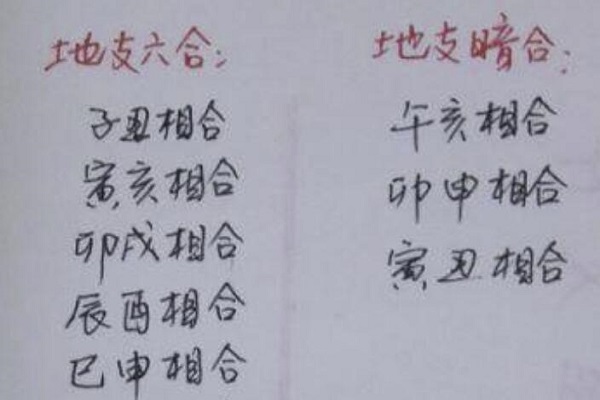 地支六合:
子丑相合
寅亥相合
卯戌相合
辰酉相合
巳申相合
地支暗合:
午亥相合
卯申相合
寅丑相合